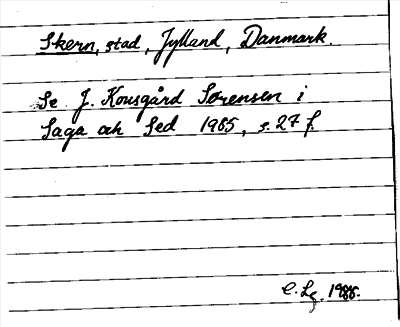 Skern, stad, Jylland, Danmark.
Se J. Kousgård Sørensen i
Saga och Sed 1985, s. 27 f.
C. Lg. 1986.